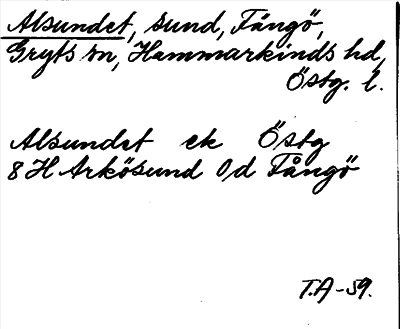 Alsundet, sund, Fångö,
Gryts sn, Hammarkinds hd,
Östg. l.
Alsundet ek Östg
8 H Arkösund 0/d Fångö
T.A-59.